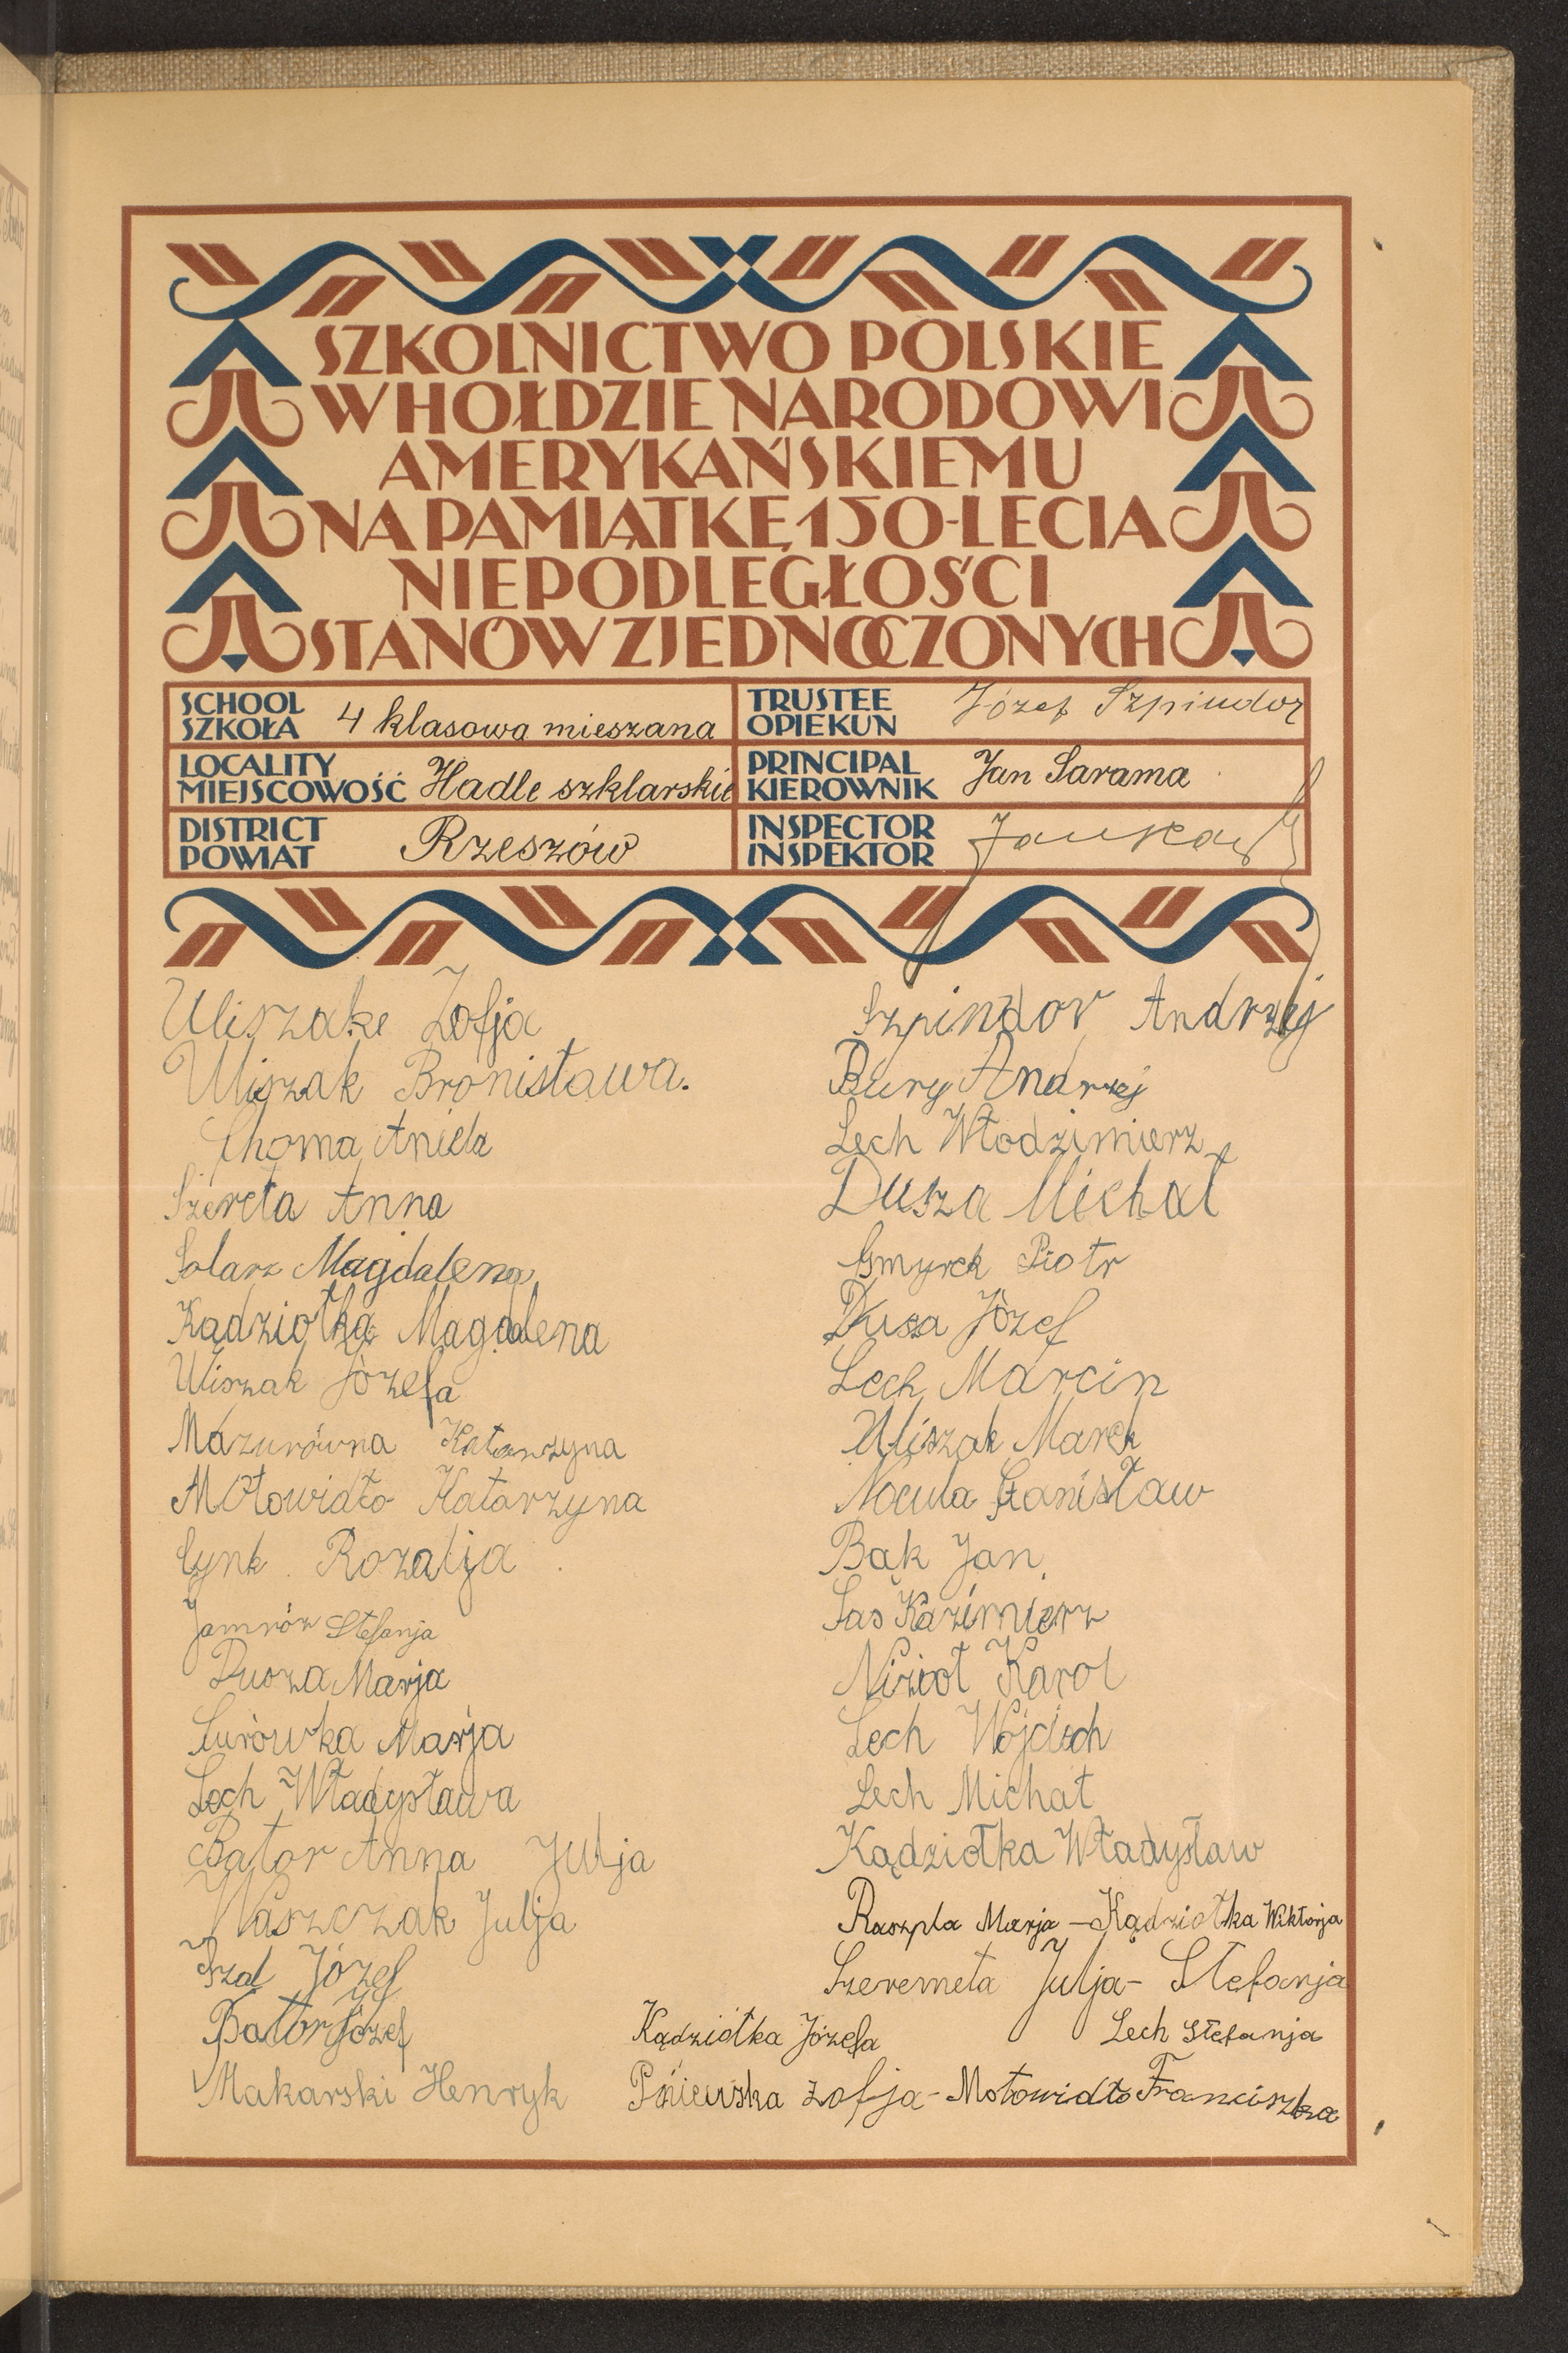 SZKOLNICTWO POLSKIE
W HOŁDZIE NARODOWI
AMERYKAŃSKIEMU
NA PAMIĄTKĘ 150-LECIA
NIEPODLEGŁOŚCI
STANÓW ZJEDNOCZONYCH
SCHOOL
SZKOŁA 4 klasowa mieszana
TRUSTEE
OPIEKUN Józef Szpindor
LOCALITY
MIEJSCOWOŚĆ Hadle szklarskie
PRINCIPAL
KIEROWNIK Jan Sarama
DISTRICT
POWIAT Rzeszów
INSPECTOR
INSPEKTOR
Uliszake Zofja
Uliszak Bronisława.
Choma Aniela
Szereta Anna
Solarz Magdalena
Kądziołka Magdalena
Uliszak Józefa
Mazurówna Katarzyna
Mołowidło Katarzyna
Cynk Rozalja
Jamróz Stefanja
Dusza Marja
Surówka Marja
Lech Władysława
Bator Anna Julja
Waszczak Julja
Szal Józef
Bator Józef
Makarski Henryk
Szpindor Andrzej
Bury Andrzej
Lech Włodzimierz
Dusza Michał
Gmyrek Piotr
Dusza Józef
Lech Marcin
Uliszak Marek
Nocula Stanisław
Bąk Jan
Sas Kazimierz
Nizioł Karol
Lech Wojciech
Lech Michał
Kądziołka Władysław
Raszpla Marja - Kądziołka Wiktorja
Szeremeta Julja - Stefanja
Kądziołka Józefa Lech Stefanja
Pśniewska Zofja - Mołowidło Franciszka